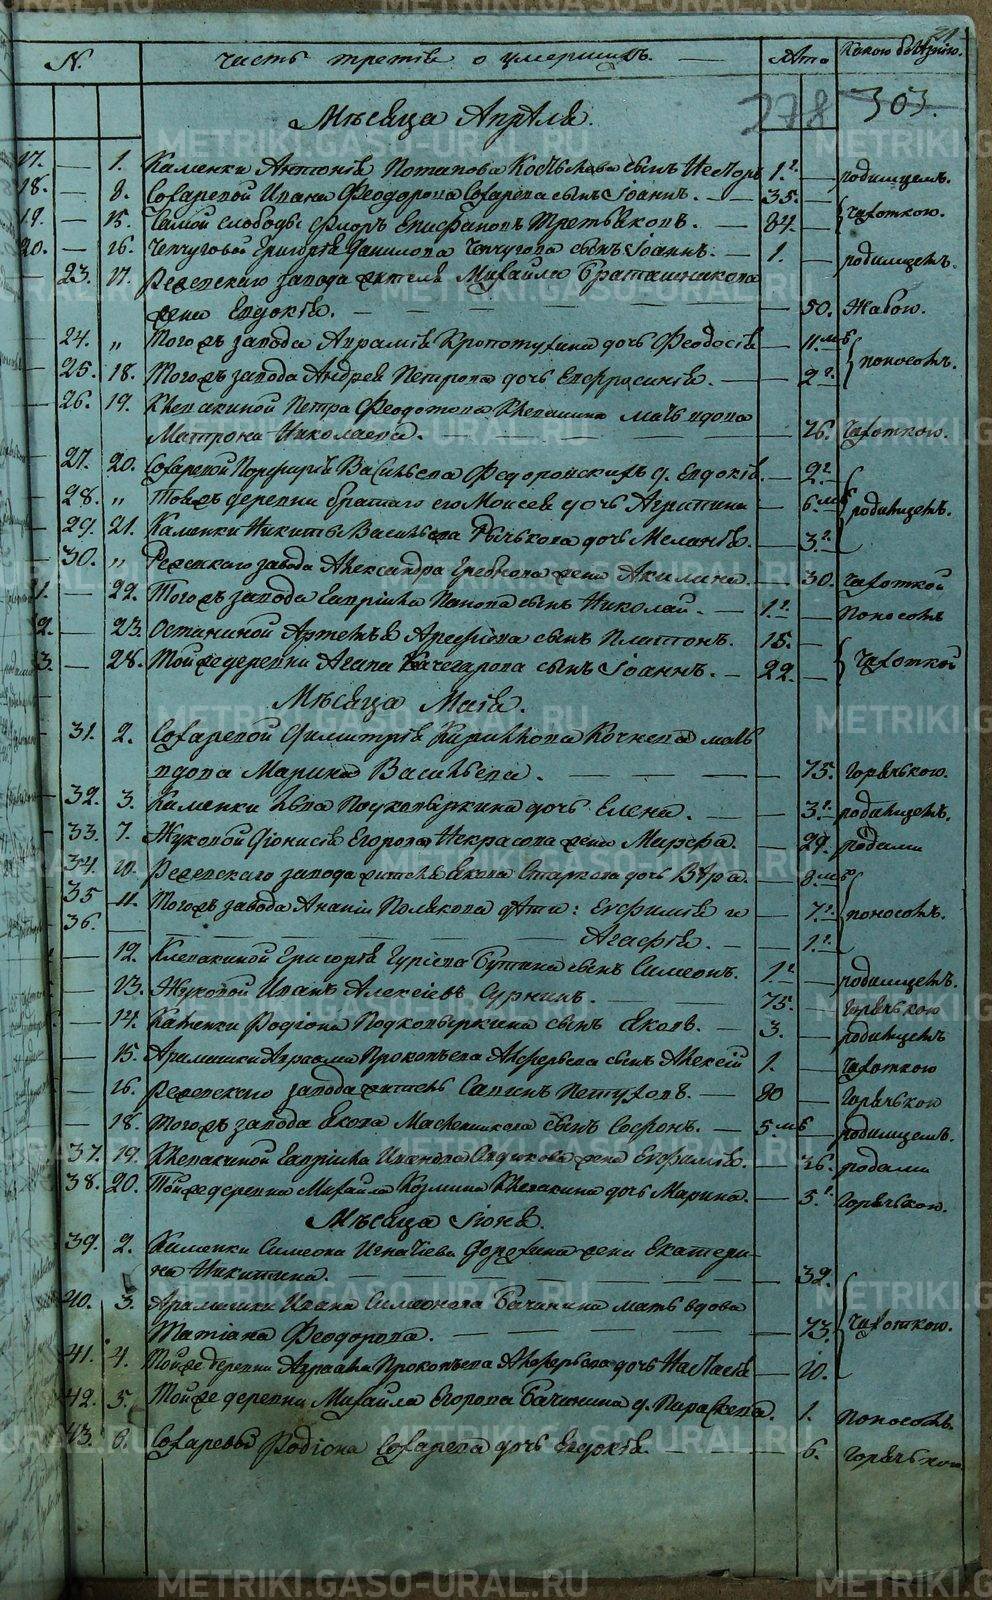 N. Часть третія о умершихъ. Лѣта Какою болѣзнію.
278 303.
Мѣсяца Апрѣля.
17. — 1. Каменки Антонія Потапова сынъ Несторъ 1.г — родимцемъ.
18. — 8. Сохаревой Ивана Феодорова Сохарева сынъ Іоаннъ. — 35. —
19. — 15. слободы Флоръ Епифановъ Третьяковъ. — 84. — чахоткою.
20. — 16. Чепчуговой Григорія Данилова Чепчугова сынъ Іоаннъ. — 1. — родимцемъ.
23. 17. Режевскаго завода жителя Михайла Братанникова
жена Евдокія. — 50. Жабою.
24. „ Тогожъ завода Авраамія Кропотухина дочь Феодосія — 11.мѣ
25. 18. Тогожъ завода Андрея Петрова дочь Евфросинія. — 2.г поносомъ.
26. 19. Клевакиной Петра Феодотова Клевакина мать вдова
Матрона Николаева. — 76. Чахоткою.
27. 20. Сохаревой Порфирія Васильева Федоровскихъ д. Евдокія. — 2.г
28. „ Тойжъ деревни брата его Моисея дочь Агрипина — 6.мѣ родимцемъ.
29. 21. Каменки Никиты Васильева дочь Меланія. — 3.г
30. „ Режевскаго завода Александра жена Акилина. — 30. Чахоткой
1. — 22. Тогожъ завода Гавріила Панова сынъ Николай. — 1.г — Поносомъ
2. — 23. Останиной Артемья Арефіева сынъ Платонъ. 15. —
3. — 28. Тойже деревни Агапа Качегарова сынъ Іоаннъ. — 22. — Чахоткой
Мѣсяца Маія.
31. 2. Сохаревой Димитрія Кириллова Кочнева мать
вдова Марина Васильева. — 75. Горячькою.
32. 3. Каменки Льва Подковыркина дочь Елена. — 3.г родимцемъ.
33. 7. Жуковой Діонисія Егорова Некрасова жена Марфа. — 29. родами
34. 10. Режевскаго завода жителя Якова Старкова дочь Вѣра. — 8.мѣ
35 — 11. Тогожъ завода Ананіи Полякова дѣти: Евфимія и — 7.г поносомъ.
36. — Агафія. — 1.г
— 12. Клевакиной Григорія Гурьева Бутана сынъ Симеонъ. 1.г — родимцемъ.
— 13. Жуковой Иванъ Алексіевъ Сурнинъ. — 75. — Горячькою
— 14. Каменки Родіона Подковыркина сынъ Яковъ. — 3. — родимцемъ
— 15. Арамашки Авраама Прокопьева Алферьева сынъ Алексій 1. — Чахоткою
— 16. Режевскаго завода житель Савинъ Петуховъ. — 80 — Горячькою
— 18. Тогожъ завода Якова Масленикова сынъ Софонъ. — 5 мѣ — родимцемъ.
37. 19. Клевакиной Гавріила жена Евфимія. — 36. родами
38. 20. Тойже деревни Михайла Козмина Клевакина дочь Марина. — 5.г Горячькою.
Мѣсяца Іюня.
39. 2. Каменки Симеона Игнатіева Дорохина жена Екатери-
на Никитина. — 32.
40. 3. Арамашки Ивана Симеонова Бачинина мать вдова
Татіана Феодорова. — 73. Чахоткою.
41. 4. Тойже деревни Авраама Прокопьева Алферьева дочь Настасія — 10.
42. 5. Тойже деревни Михайла Егорова Бачинина д. Параскева. 1. Поносомъ.
43. 6. Сохаревой Родіона Сохарева дочь Евдокія. — 6. Горячькою.
METRIKI.GASO-URAL.RU